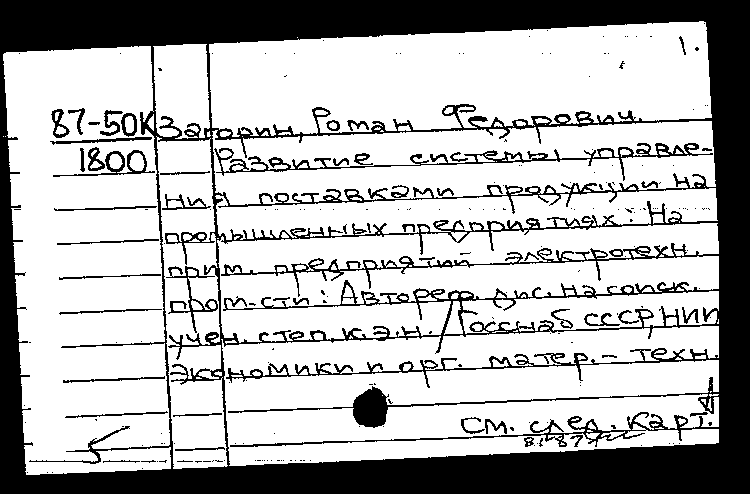 1.
87-50К Загорин, Роман Федорович.
1800 Развитие системы управле-
ния поставками продукции на
промышленных предприятиях: На
прим. предприятий электротехн.
пром-сти : Автореф. дис. на соиск.
учен. степ. к.э.н. / Госснаб СССР, НИИ
экономики и орг. матер.- техн.
см. след. карт.
5